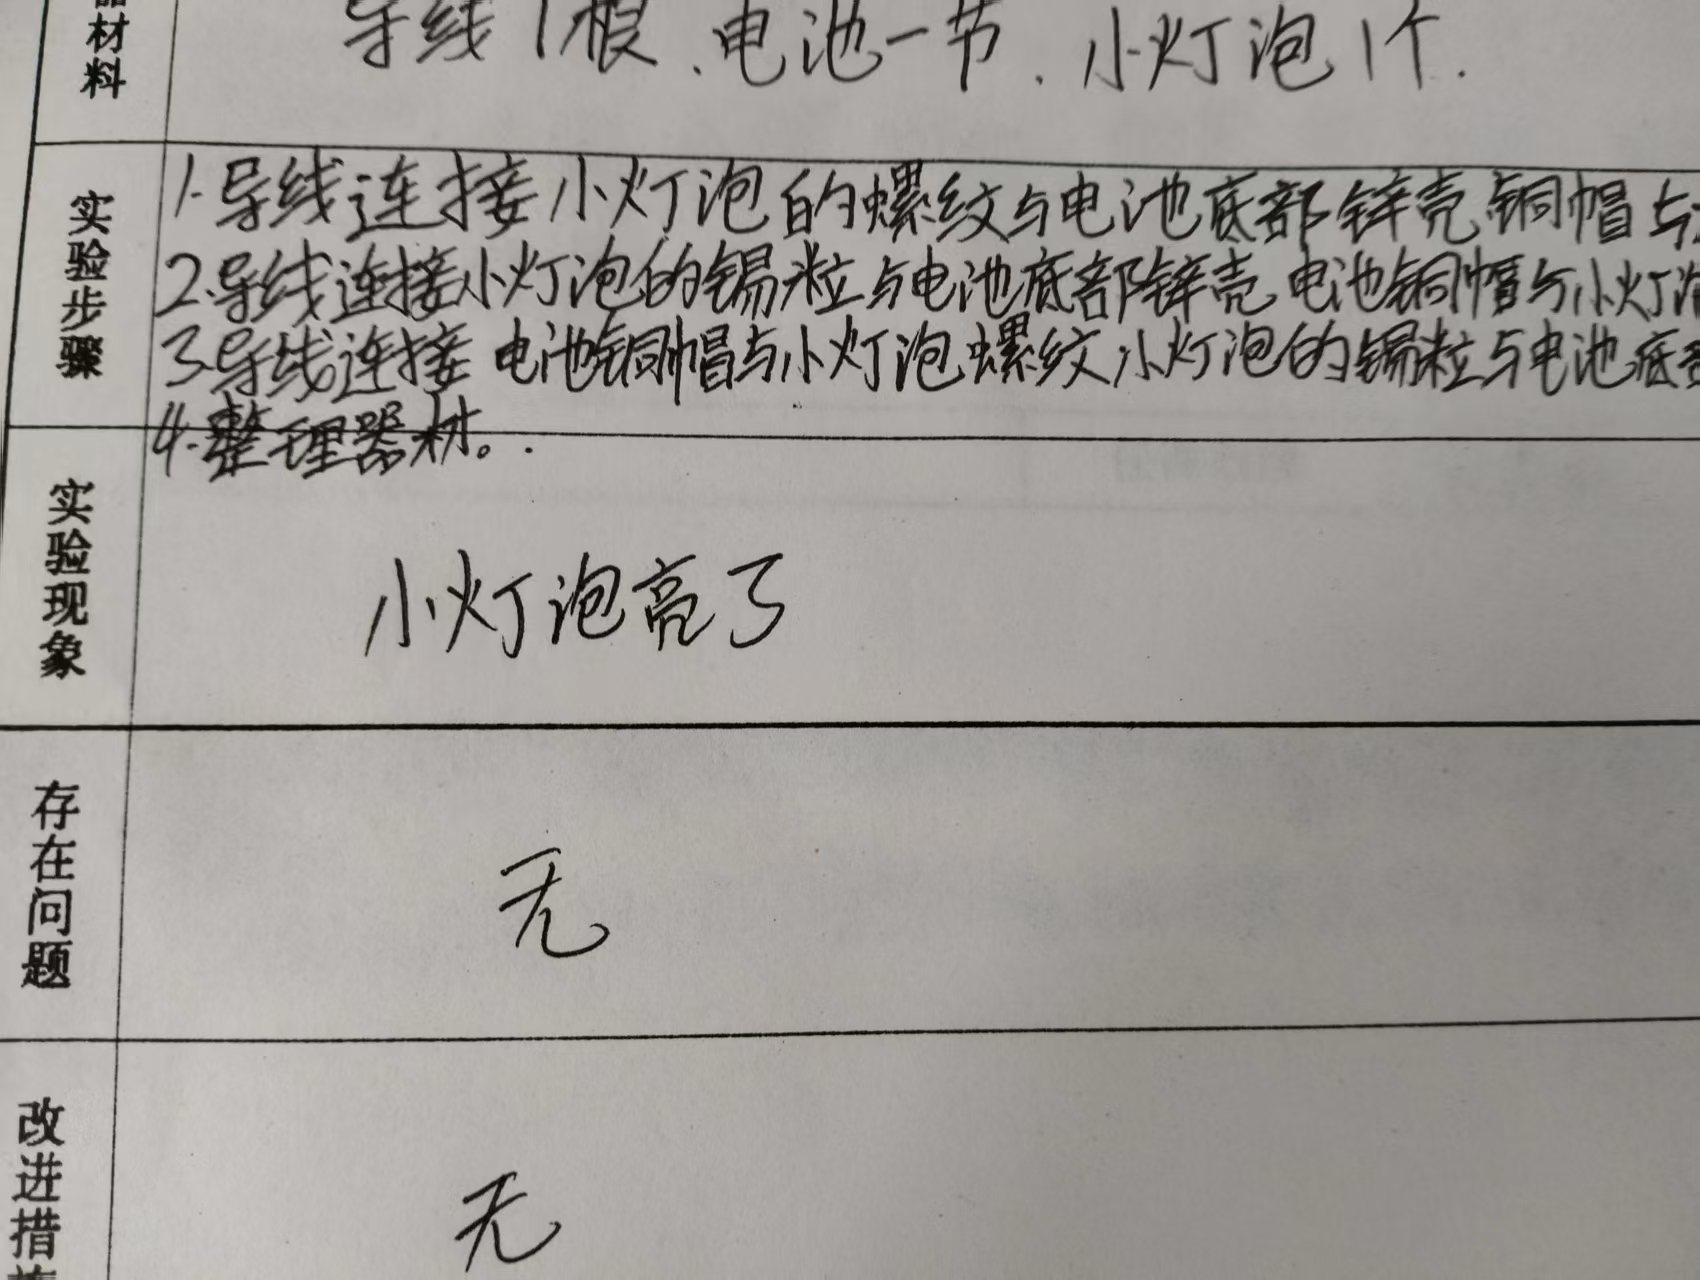 材料
导线1根、电池一节、小灯泡1个.
实验步骤
1.导线连接小灯泡的螺纹与电池底部锌壳 铜帽与
2.导线连接小灯泡的锡粒与电池底部锌壳 电池铜帽与小灯泡
3.导线连接 电池铜帽与小灯泡螺纹 小灯泡的锡粒与电池底部
4.整理器材。.
实验现象
小灯泡亮了
存在问题
无
改进措
无